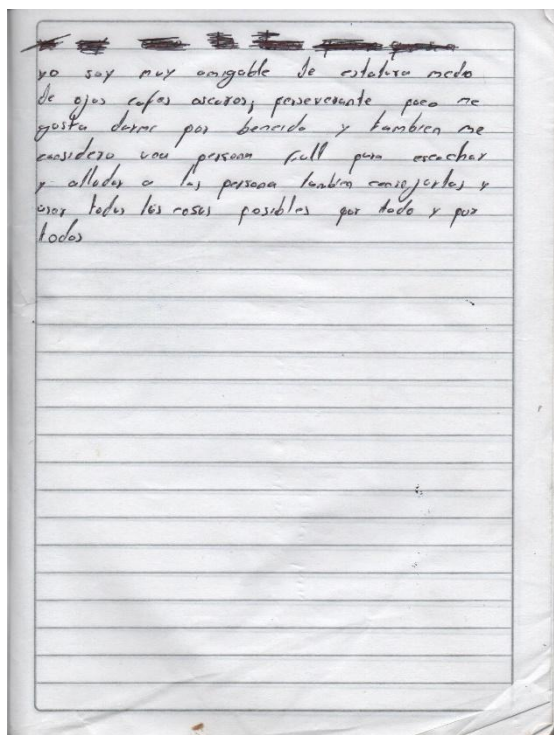 yo soy muy amigable de estatura medo
de ojos cafes oscuros, perseverante, poco me
gusta darme por bencido y tambien me
considero una persona full para escuchar
y alludar a las persona tambien consejarlas y
usar todas las cosas posibles por todo y por
todos